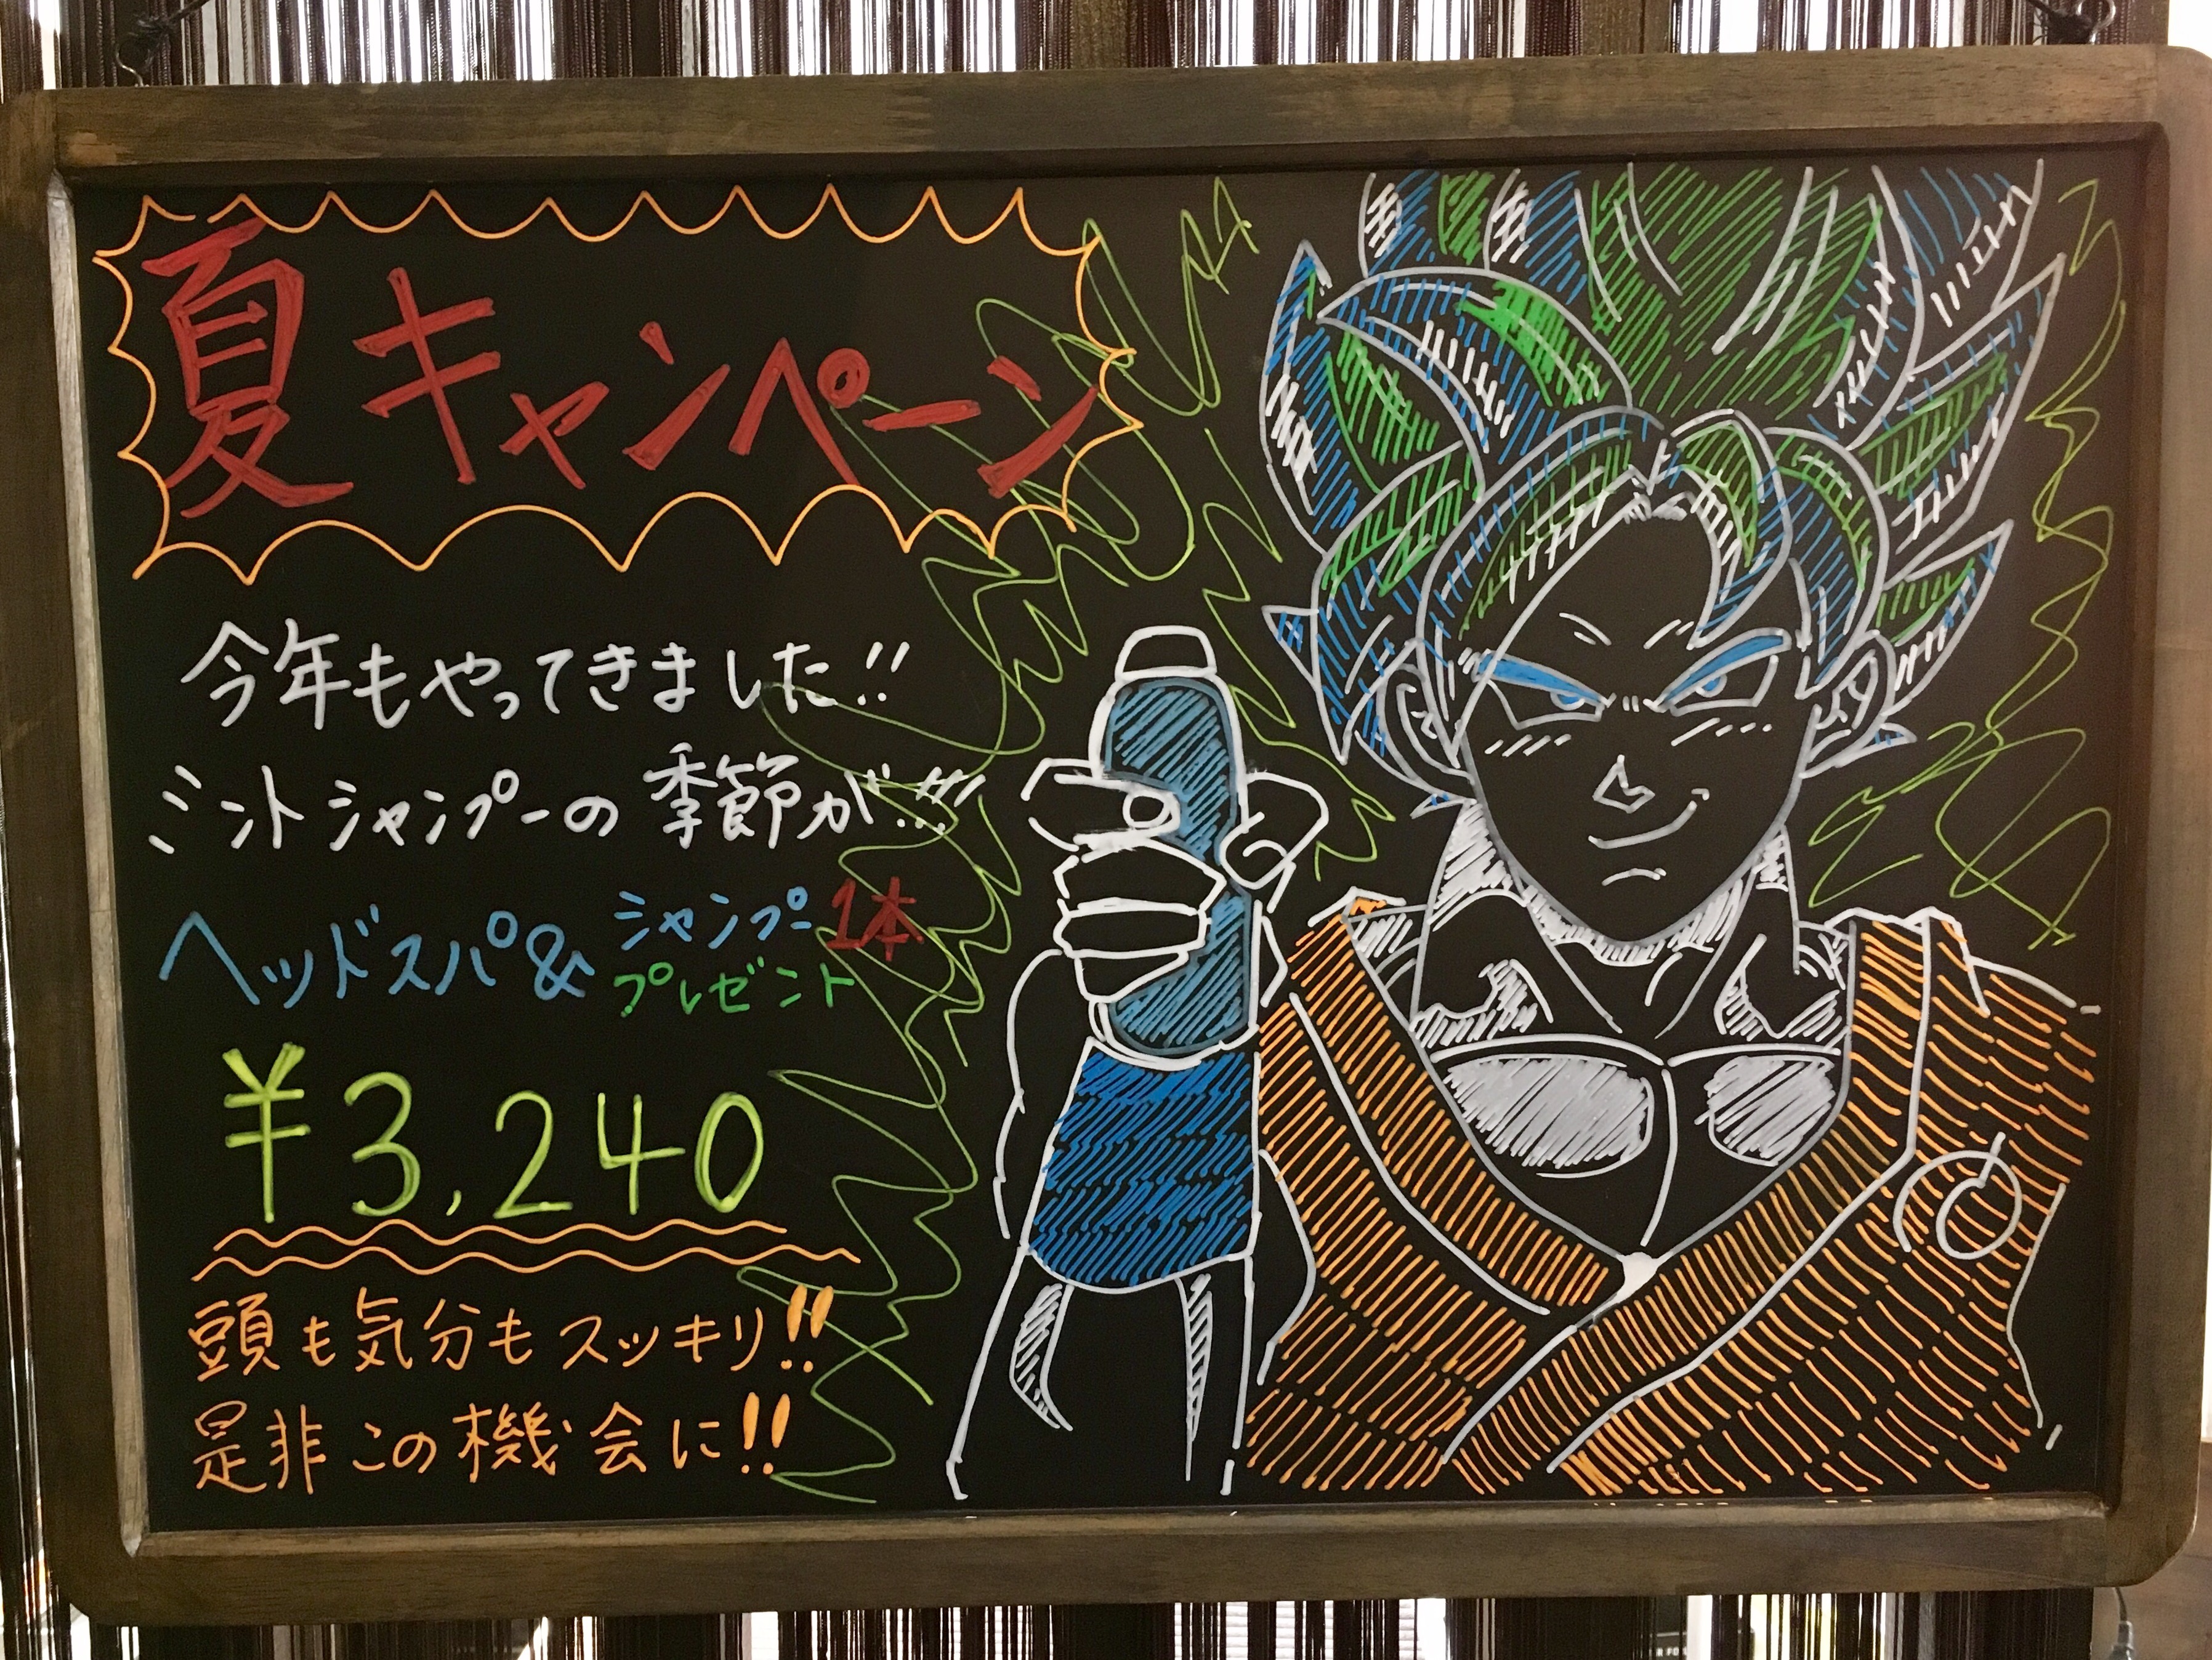 夏キャンペーン
今年もやってきました!!
ミントシャンプーの季節が…!!!
ヘッドスパ&シャンプー1本
プレゼント
¥3,240
頭も気分もスッキリ!!
是非この機会に!!